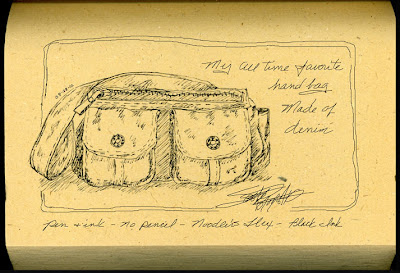 My all time favorite
hand bag
Made of
denim
Pen + ink - no pencil - Noodler's Flex - Black ink